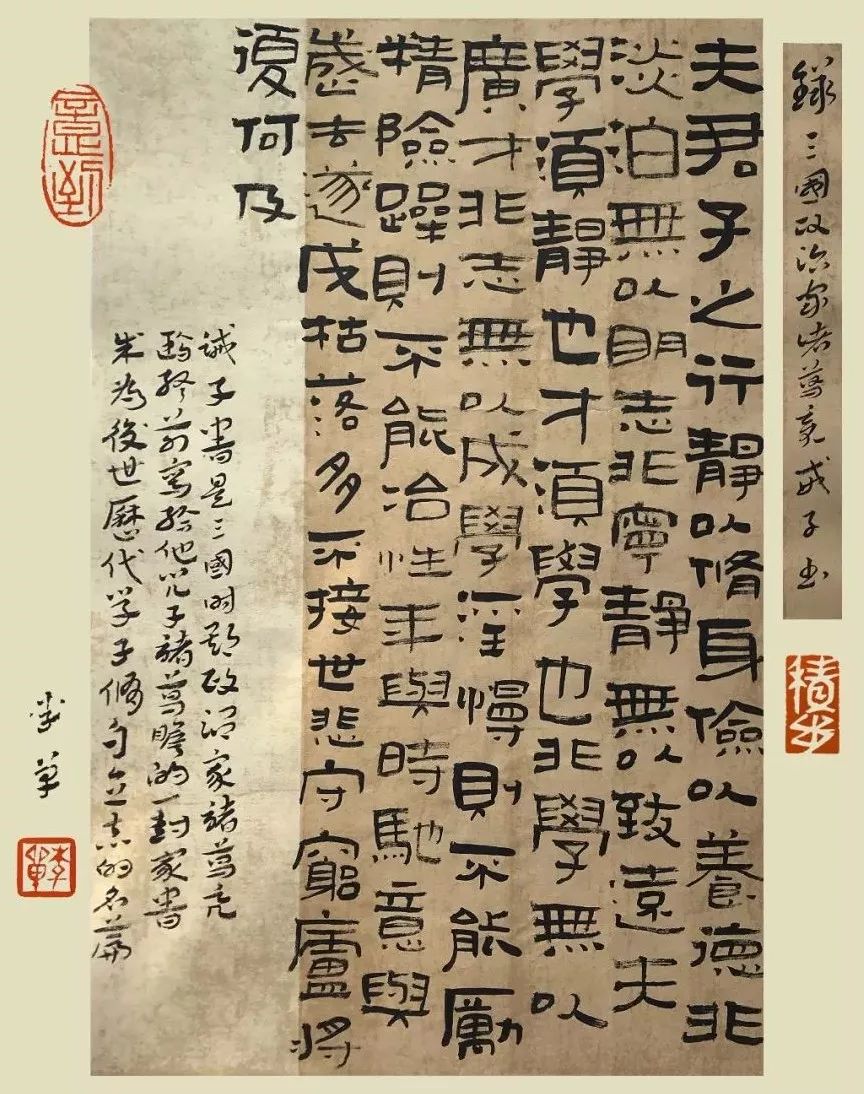 錄三國政治家诸葛亮戒子书
夫君子之行靜以脩身儉以養德非
淡泊無以明志非寧靜無以致遠夫
學須靜也才須學也非學無以
廣才非志無以成學淫慢則不能勵
精險躁則不能冶性年與時馳意與
歲去遂成枯落多不接世悲守窮廬將
復何及
诫子書是三國时期政治家諸葛亮
臨終前寫給他兒子諸葛瞻的一封家書
成为後世歷代学子修身立志的名篇